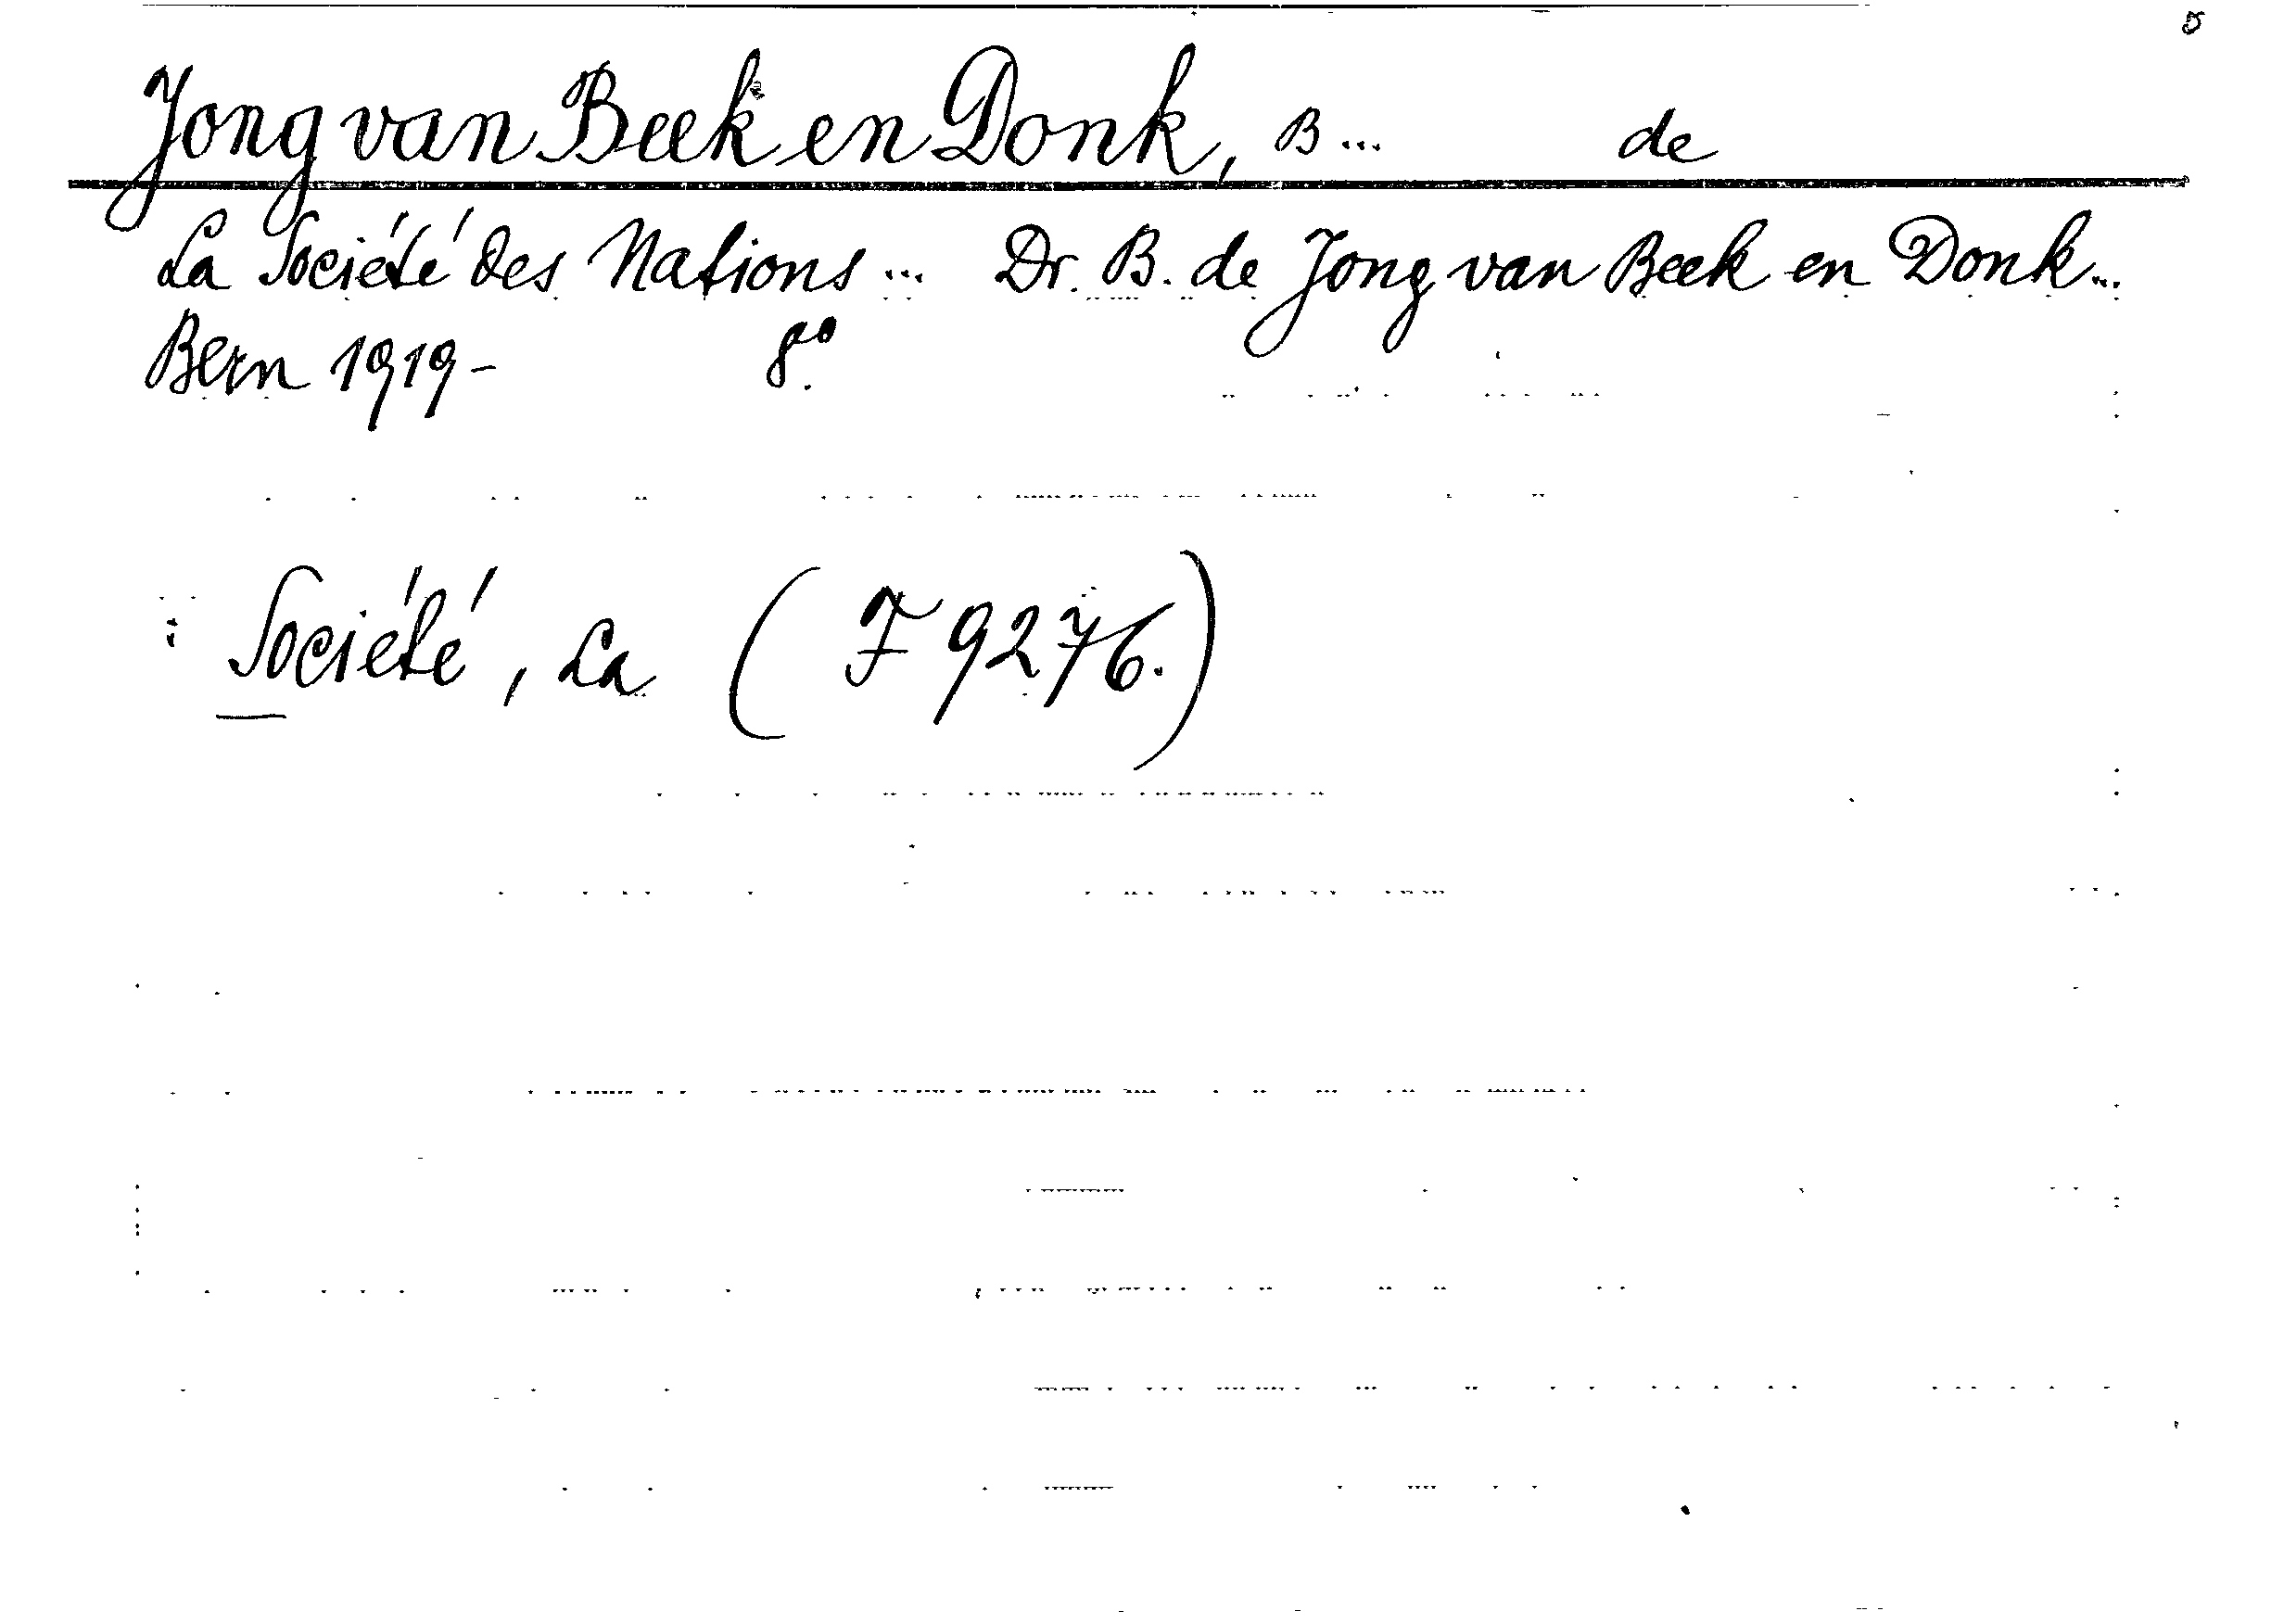 Jong van Beek en Donk, B... de
La Société des Nations... Dr. B. de Jong van Beek en Donk...
Bern 1919- 8°.
: Société, La (F 9276.)